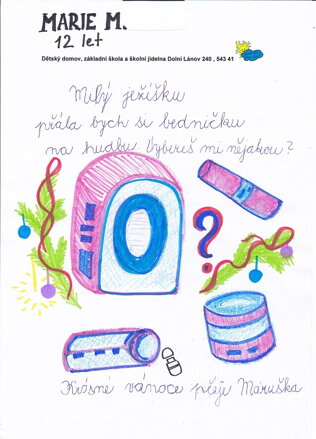 MARIE M.
12 let
Dětský domov, základní škola a školní jídelna Dolní Lánov 240 , 543 41
Milý ježíšku
přála bych si bedničku
na hudbu Vybereš mi nějakou?
?
Krásné vánoce přeji Maruška